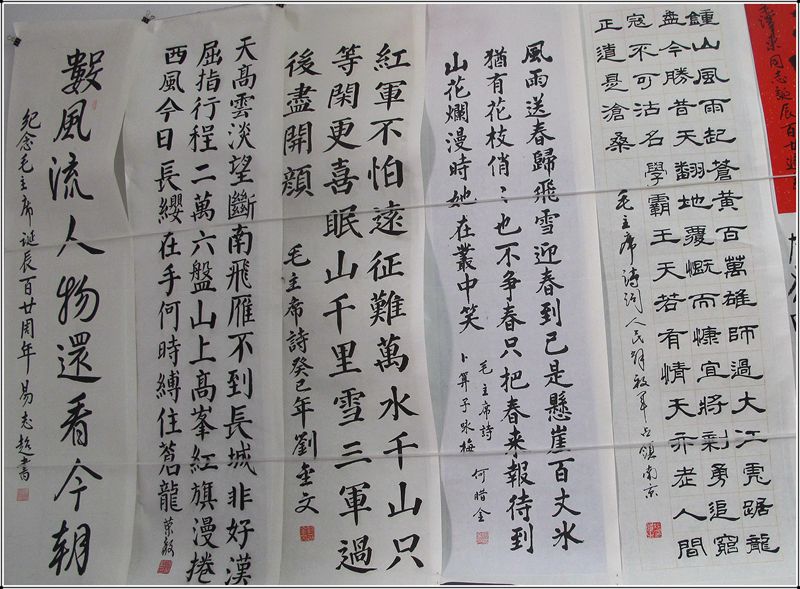 毛澤東同志誕辰百廿週
鍾山風雨起蒼黃百萬雄師過大江虎踞龍
盘今勝昔天翻地覆慨而慷宜將剩勇追窮
寇不可沽名學霸王天若有情天亦老人間
正道是滄桑
毛主席诗词人民解放军占領南京
風雨送春歸飛雪迎春到已是懸崖百丈冰
猶有花枝俏〻也不争春只把春来報待到
山花爛漫時她在叢中笑
毛主席詩
卜算子咏梅 何腊全
紅軍不怕遠征難萬水千山只
等閑更喜眠山千里雪三軍過
後盡開顏
毛主席詩癸巳年劉金文
天高雲淡望斷南飛雁不到長城非好漢
屈指行程二萬六盤山上高峯紅旗漫捲
西風今日長纓在手何時縛住蒼龍
數風流人物還看今朝
紀念毛主席誕辰百廿周年 易志超書